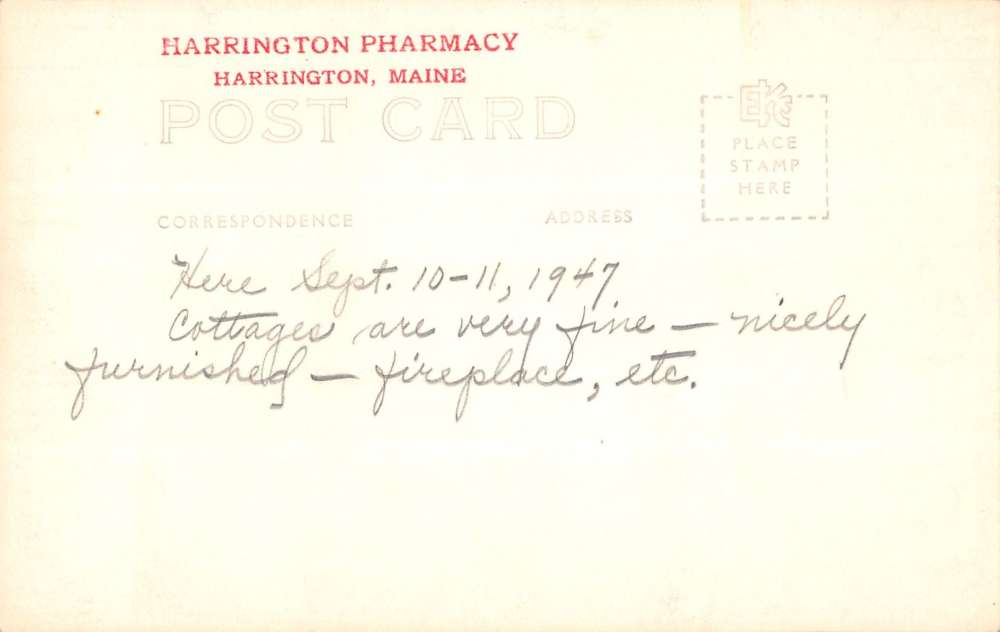 HARRINGTON PHARMACY
HARRINGTON, MAINE
POST CARD
EKC
PLACE
STAMP
HERE
CORRESPONDENCE ADDRESS
Here Sept. 10-11, 1947
Cottages are very fine — nicely
furnished — fireplace, etc.